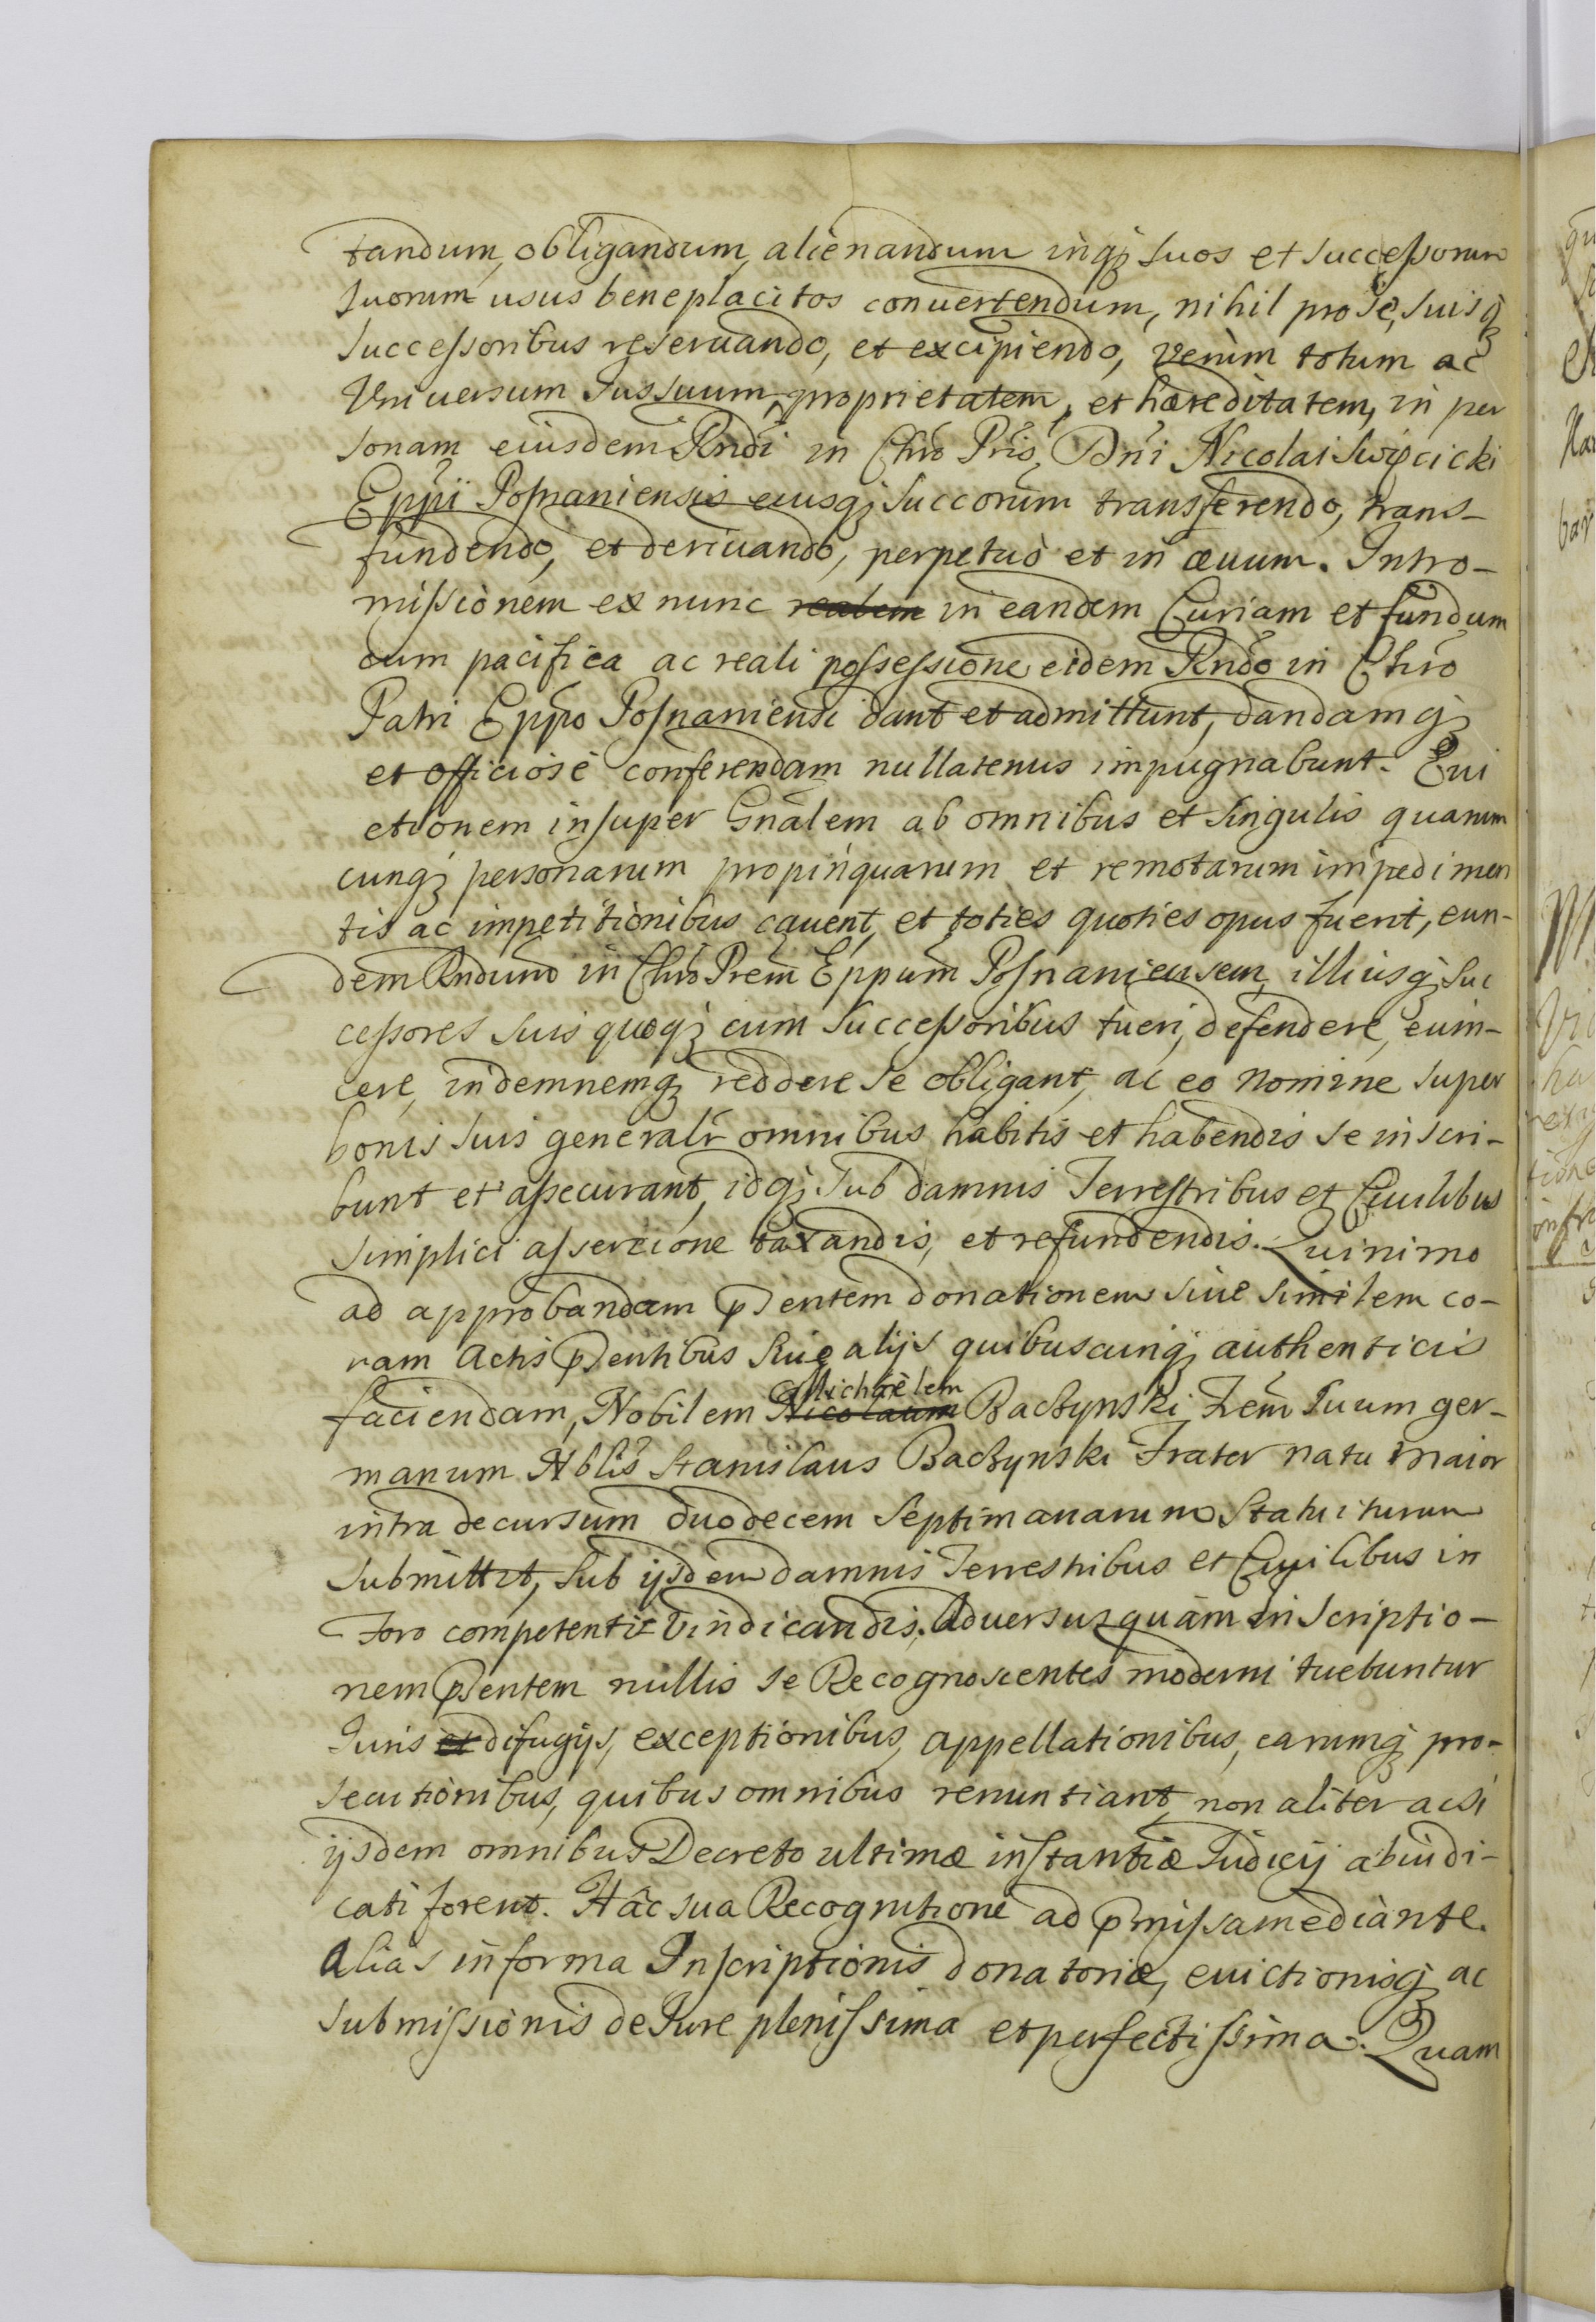 tandum, obligandum, alienandum inq; suos et successorum
suorum usus beneplacitos conuertendum, nihil pro se, suisq;
successoribus reseruando, et excipiendo, verum totum ac
Vniuersum Jus suum, proprietatem, et hæreditatem, in per
sonam eiusdem Rndi in Chro Pris, Dni Nicolai Swięcicki
Eppi Posnaniensis eiusq; succorum transferendo, trans-
fundendo, et deriuando, perpetuo et in æuum. Intro-
missionem ex nunc realem in eandem Curiam et fundum
cum pacifica ac reali possessione eidem Rndo in Chro
Patri Eppo Posnaniensi dant et admittunt, dandamq;
et officiose conferendam nullatenus impugnabunt. Eui
ctionem insuper Gnalem ab omnibus et singulis quarum
cunq; personarum propinquarum et remotarum impedimen
tis ac impetitionibus cauent, et toties quoties opus fuerit, eun-
dem Rndum in Chro Prem Eppum Posnaniensem, illiusq; suc
cessores suis quoq; cum successoribus tueri, defendere, euin-
cere, indemnemq; reddere se obligant, ac eo nomine super
bonis suis generalr omnibus habitis et habendis se inscri-
bunt et assecurant, idq; sub damnis Terrestribus et Ciuilibus
simplici assercione taxandis, et refundendis. Quinimo
ad approbandam psentem donationem siue similem co-
ram Actis psentibus siue alijs quibuscunq; authenticis
faciendam, Nobilem Nicolaum Michaëlem Baczynski Frem suum ger-
manum Nblis Stanislaus Baczynski Frater natu maior
intra decursum duodecem septimanarum statuiturum
submittit, sub ijsdem damnis Terrestribus et Ciuilibus in
Foro competenti vindicandis. Aduersus quam inscriptio-
nem psentem nullis se Recognoscentes moderni tuebuntur
Juris et difugijs, exceptionibus, appellationibus, earumq; pro-
secutionibus, quibus omnibus renuntiant, non aliter acsi
ijsdem omnibus Decreto ultimæ instantiæ Judicij abiudi-
cati forent. Hac sua Recognitione ad pmissa mediante.
Alias in forma Inscriptionis donatoriæ, euictionisq; ac
submissionis de Jure plenissima et perfectissima. Quam